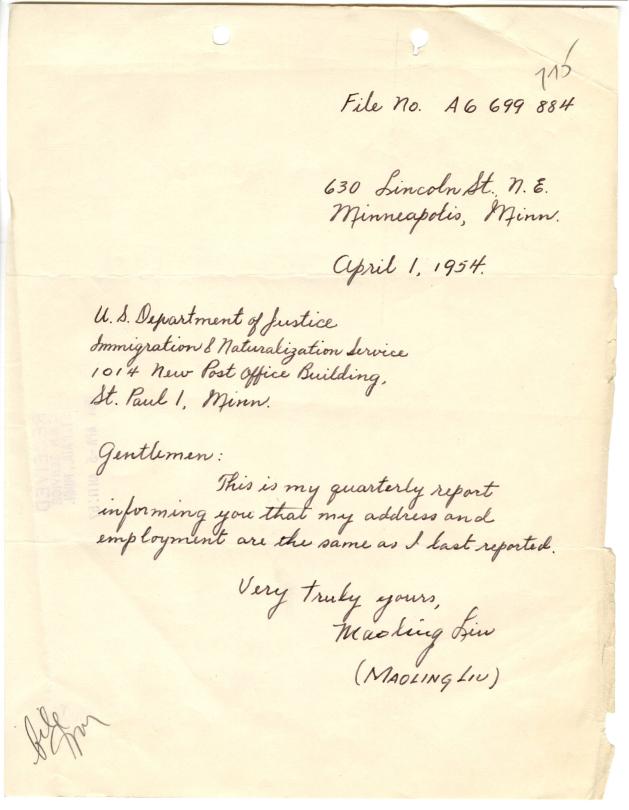 File No. A6 699 884
630 Lincoln St. N.E.
Minneapolis, Minn.
April 1, 1954.
U.S. Department of Justice
Immigration & Naturalization Service
1014 New Post Office Building,
St. Paul 1, Minn.
Gentlemen:
This is my quarterly report
informing you that my address and
employment are the same as I last reported.
Very truly yours,
Maoling Liu
(MAOLING LIU)
file
RECEIVED